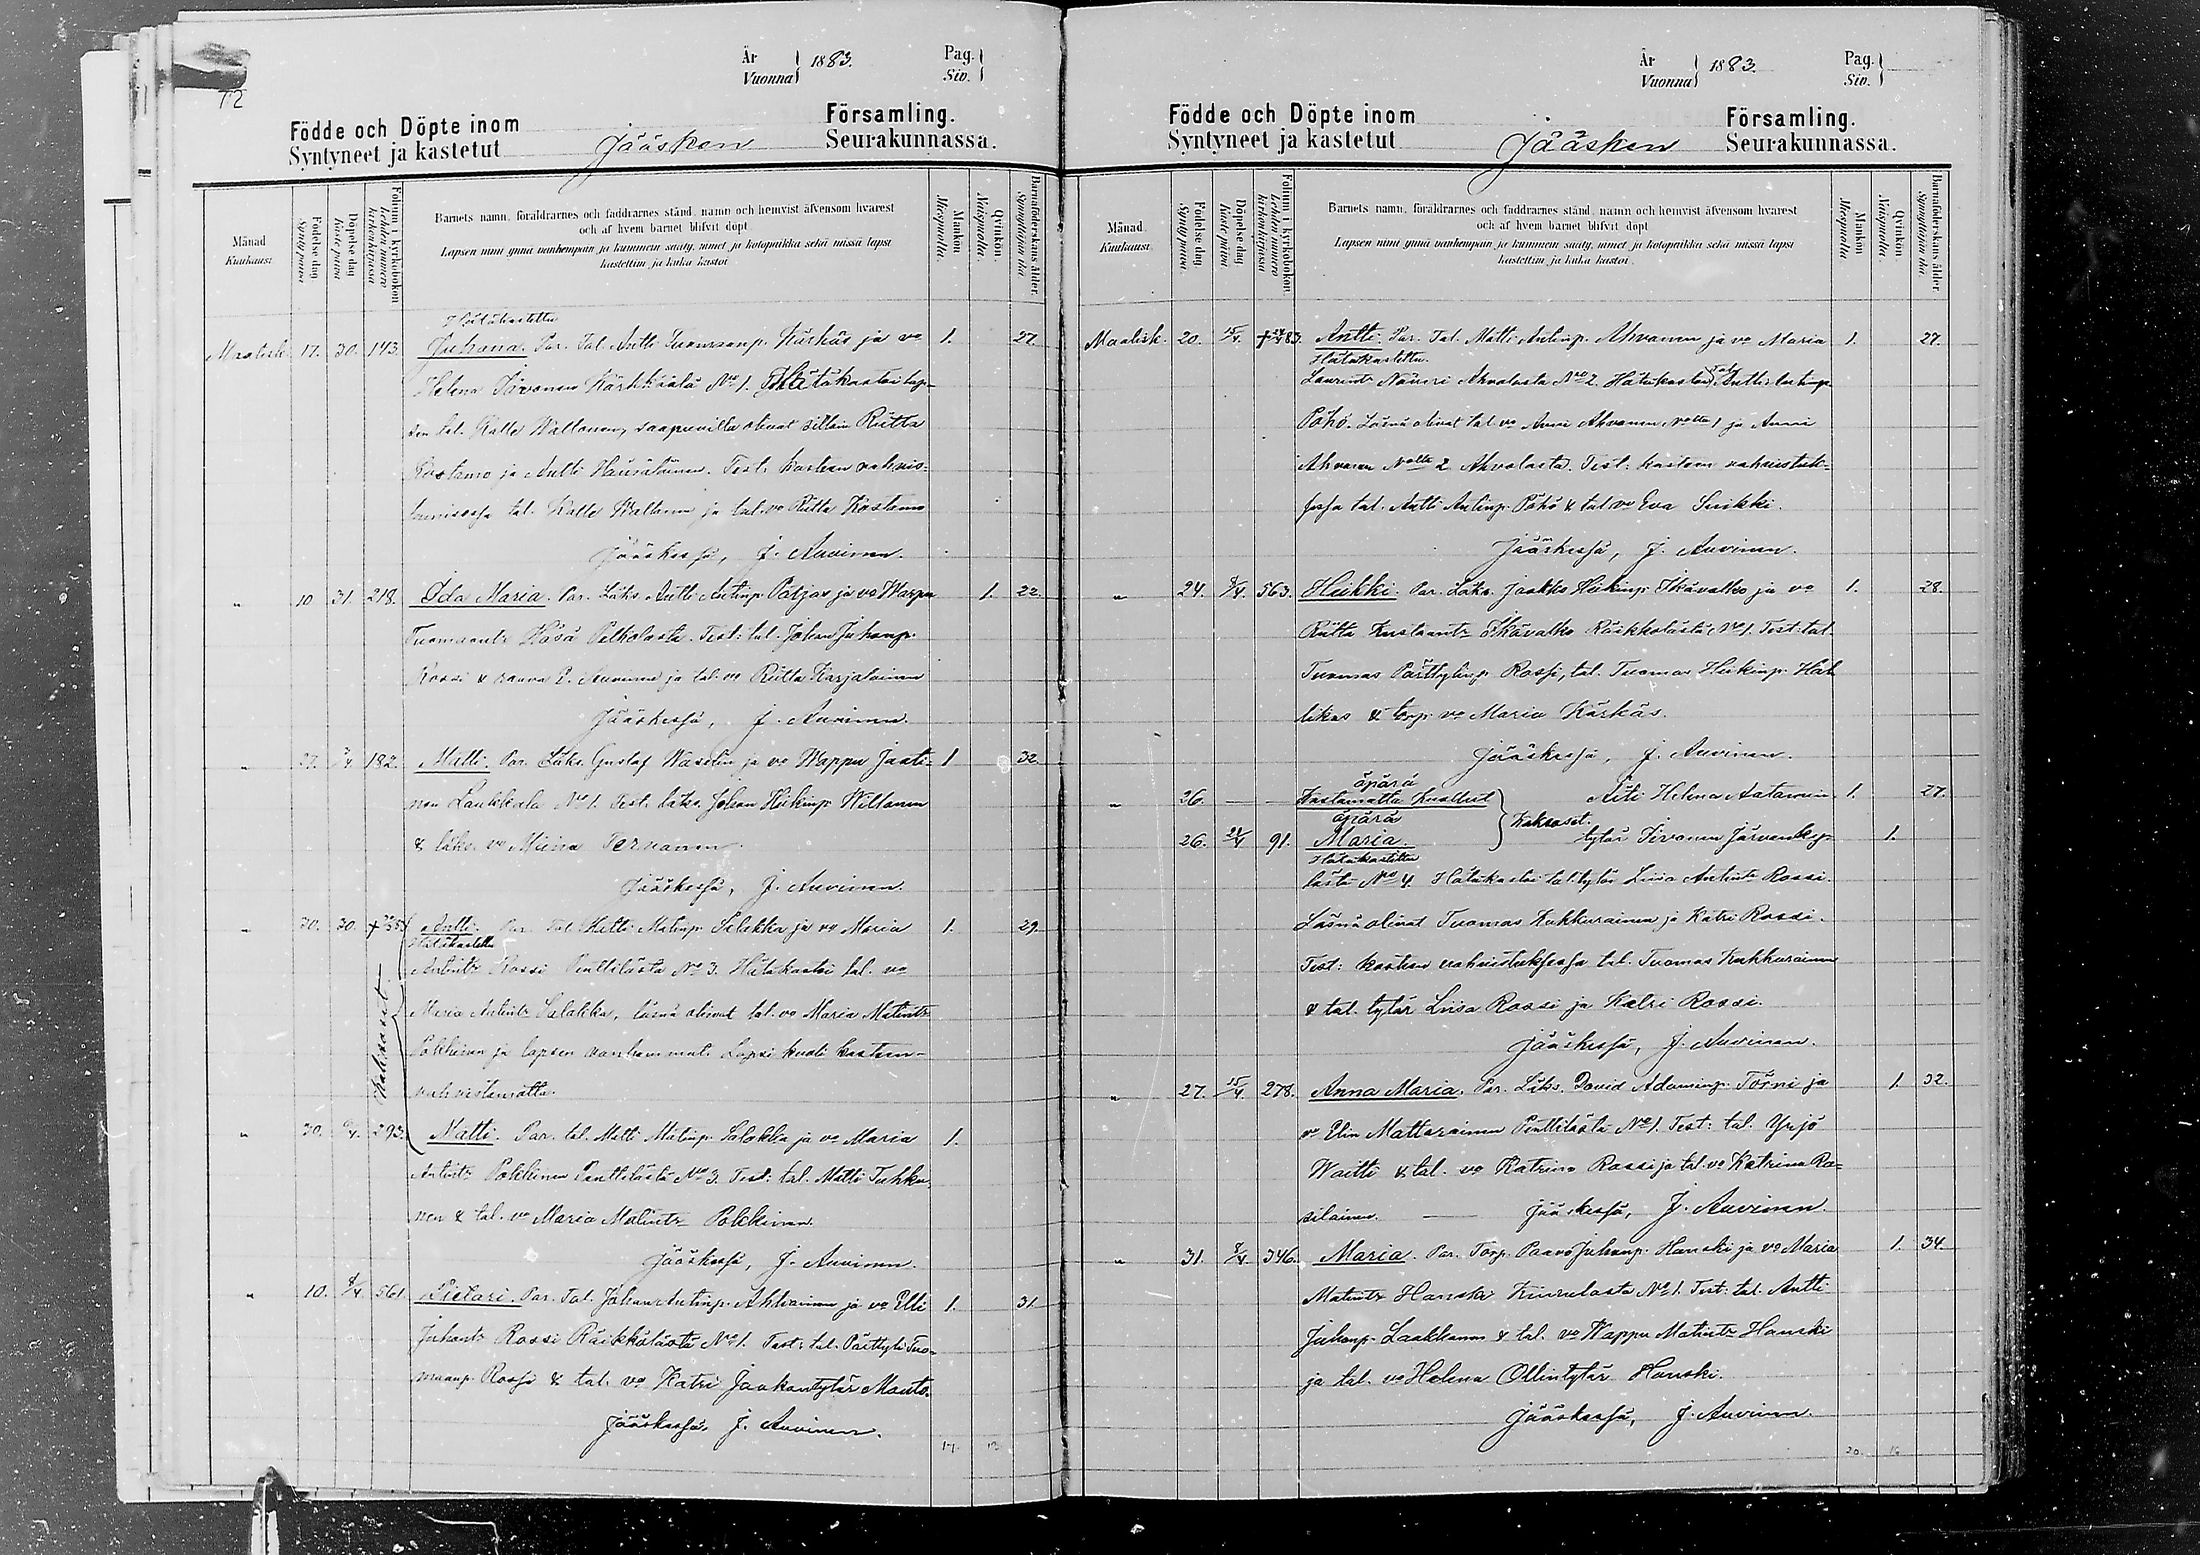 72
År
Vuonna 1883.
Pag.
Siv.
Födde och Döpte inom
Syntyneet ja kastetut Jääsken
Församling.
Seurakunnassa.
Månad
Kuukausi.
Födelse dag.
Syntypäivä
Döpelse dag
Kaste päivä
Folium i kyrkoboken.
Lehden numero kirkonkirjassa
Barnets namn, föräldrarnes och faddrarnes stånd, namn och hemvist äfvensom hvarest
och af hvem barnet blifvit döpt.
Lapsen nimi ynnä vanhempain ja kummein sääty, nimet ja kotopaikka sekä missä lapsi
kastettiin ja kuka kastoi.
Mankön
Miespuolia.
Qvinkön.
Naispuolia.
Barnaföderskans ålder.
Synnyttäjän ikä.
Hätäkastettu
Maalisk. 17. 30. 143. Juhana. Par. Tal. Antti Tuomaanp. Kärkäs ja vo 1. 27.
Helena Sivonen Kärkkäälä No 1. Hätäkastoi lap-
sen tal. Kalle Waltonen, saapuvilla olivat silloin Riitta
Kostamo ja Antti Test. kasteen vahvis-
tal. Kalle Waltonen ja tal. vo Riitta Kostamo
Jääskessä, J. Auvinen.
" 10 31. 218. Ida Maria. Par. Läks. Antti Antinp. Patjas ja vo Wappu 1. 22.
Tuomaantr Häsä Pelkolasta. Test: tal. Johan Juhanp.
Rossi & rouva P. Auvinen ja tal. vo Riitta Karjalainen
Jääskessä, J. Auvinen.
" 27. 182. Matti. Par. Läks. Gustaf Waselin ja vo Wappu Jaati- 1 32.
nen Laukkala No 1. Test. läks. Johan Heikinp. Wiltonen
& läks. vo Miina Pernanen.
Jääskessä, J. Auvinen.
" 30. 30. Antti. Par. Tal. Matti Matinp. Salakka ja vo Maria 1. 29.
Hätäkastettu
Antintr Rossi Penttilästä No 3. Hätäkastoi tal. vo
Maria Antintr Salakka, läsnä olivat tal. vo Maria Matintr
Pokkinen ja lapsen vanhemmat. Lapsi kuoli kasteen-
vahvistamatta.
Kaksoset
" 30. 293. Matti. Par. tal. Matti Matinp. Salakka ja vo Maria 1.
Antintr Pokkinen Penttilästä No 3. Test: tal. Matti Tuhku-
nen & tal. vo Maria Matintr Pokkinen.
Jääskessä, J. Auvinen.
" 10. 8/4 561. Pietari. Par. Tal. Johan Antinp. Ahvainen ja vo Elli 1. 31.
Juhantr Rossi Räikkölästä No 1. Test: tal. Pärttyli Tuo-
maanp. Rossi & tal. vo Katri Jaakontytär Manto.
Jääskessä, J. Auvinen.
17. 13
År
Vuonna 1883.
Pag.
Siv.
Födde och Döpte inom
Syntyneet ja kastetut Jääsken
Församling.
Seurakunnassa.
Månad
Kuukausi.
Födelse dag.
Syntypäivä
Döpelse dag
Kaste päivä
Folium i kyrkoboken.
Lehden numero kirkonkirjassa
Barnets namn, föräldrarnes och faddrarnes stånd, namn och hemvist äfvensom hvarest
och af hvem barnet blifvit döpt.
Lapsen nimi ynnä vanhempain ja kummein sääty, nimet ja kotopaikka sekä missä lapsi
kastettiin ja kuka kastoi.
Mankön
Miespuolia.
Qvinkön.
Naispuolia.
Barnaföderskans ålder.
Synnyttäjän ikä.
Maalisk. 20. 15/4 Antti. Par. Tal. Matti Antinp. Ahvanen ja vo Maria 1. 27.
Hätäkastettu.
Laurintr Näveri Ahvolasta No 2. Hätäkastoi tal. Antti Antinp.
Pöhö. Läsnä olivat tal. vo Anni Ahvanen No 1 ja Anni
Ahvanen No 2 Ahvolasta. Test: kasteen vahvistuk-
sessa tal. Antti Antinp. Pöhö & tal. vo Eva Suikki.
Jääskessä, J. Auvinen.
" 24. 8/4 563. Heikki. Par. Läks. Jaakko Heikinp. Ikävalko ja vo 1. 28.
Riitta Kustaantr Ikävalko Räikkölästä No 1. Test: tal.
Tuomas Pärttylinp. Rossi, tal. Tuomas Heikinp. Hal-
likas & torp. vo Maria Kärkäs.
Jääskessä, J. Auvinen.
" 26. — — äpärä Kastamatta kuollut Äiti Helena Aatamin- 1. 27.
Kaksoset.
26. 91. äpärä Maria. tytär Sivonen Järvenky- 1.
Hätäkastettu
lästä No 4. Hätäkastoi tal. tytär Liisa Antintr Rossi.
Läsnä olivat Tuomas Kukkurainen ja Katri Rossi.
Test: kasteen vahvistuksessa tal. Tuomas Kukkurainen
& tal. tytär Liisa Rossi ja Katri Rossi.
Jääskessä, J. Auvinen.
" 27. 15/4 278. Anna Maria. Par. Läks. David Adaminp. Törni ja 1. 32.
vo Elin Mattarainen Penttilästä No 1. Test: tal. Yrjö
Waitti & tal. vo Katrina Rossi ja tal. vo Katrina Ra-
silainen. — Jääskessä, J. Auvinen.
" 31. 346. Maria. Par. Torp. Paavo Juhanp. Hanski ja vo Maria 1. 34.
Matintr Hanski Kuurulasta No 1. Test: tal. Antti
Juhanp. Laakkonen & tal. vo Wappu Matintr Hanski
ja tal. vo Helena Ollintytär Hanski.
Jääskessä, J. Auvinen.
20. 16